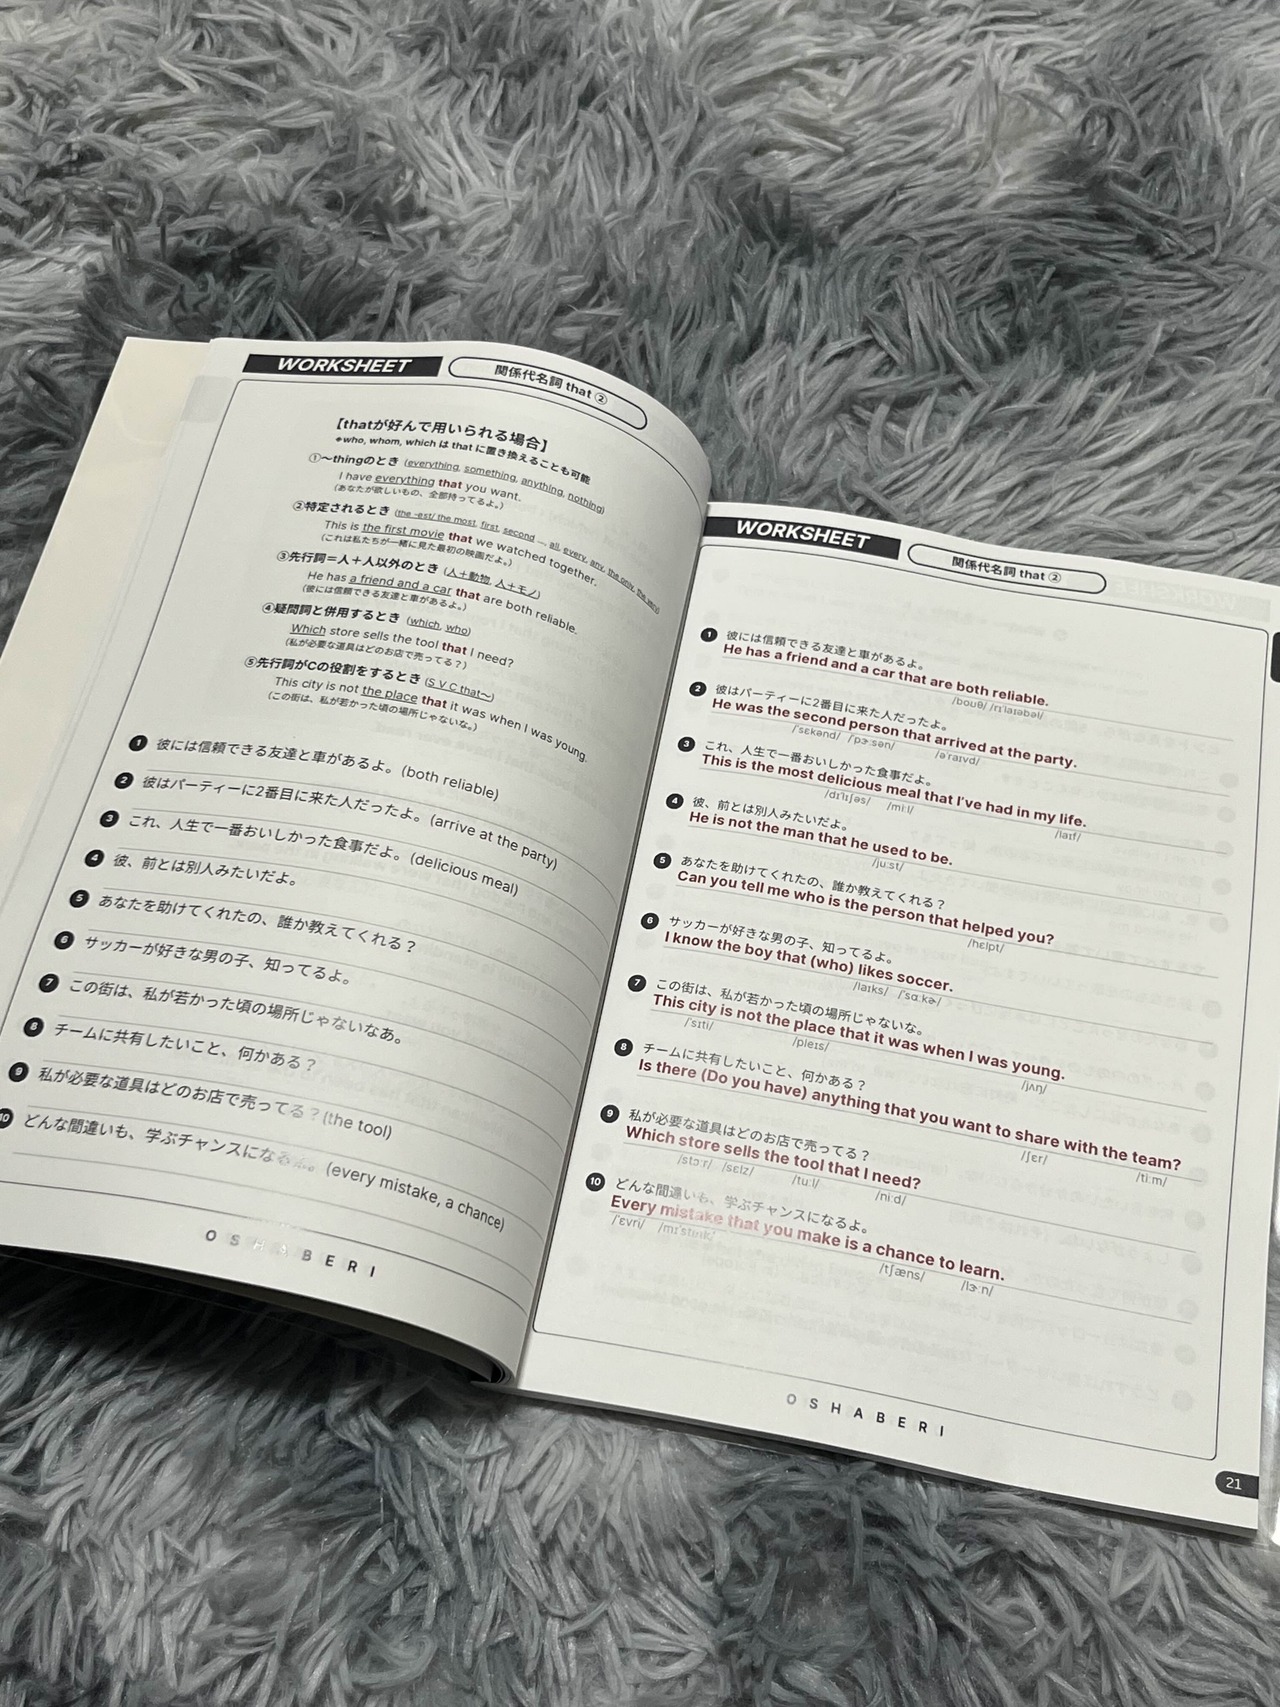 WORKSHEET
関係代名詞 that ②
【thatが好んで用いられる場合】
※who, whom, which は that に置き換えることも可能
①〜thingのとき (everything, something, anything, nothing)
I have everything that you want.
(あなたが欲しいもの、全部持ってるよ。)
②特定されるとき (the -est/ the most, first, second …, all, every, any, the only, the very)
This is the first movie that we watched together.
(これは私たちが一緒に見た最初の映画だよ。)
③先行詞＝人＋人以外のとき (人＋動物, 人＋モノ)
He has a friend and a car that are both reliable.
(彼には信頼できる友達と車があるよ。)
④疑問詞と併用するとき (which, who)
Which store sells the tool that I need?
(私が必要な道具はどのお店で売ってる？)
⑤先行詞がCの役割をするとき (S V C that〜)
This city is not the place that it was when I was young.
(この街は、私が若かった頃の場所じゃないな。)
1 彼には信頼できる友達と車があるよ。(both reliable)
2 彼はパーティーに2番目に来た人だったよ。(arrive at the party)
3 これ、人生で一番おいしかった食事だよ。(delicious meal)
4 彼、前とは別人みたいだよ。
5 あなたを助けてくれたの、誰か教えてくれる？
6 サッカーが好きな男の子、知ってるよ。
7 この街は、私が若かった頃の場所じゃないなあ。
8 チームに共有したいこと、何かある？
9 私が必要な道具はどのお店で売ってる？(the tool)
10 どんな間違いも、学ぶチャンスになるよ。(every mistake, a chance)
OSHABERI
WORKSHEET
関係代名詞 that ②
1 彼には信頼できる友達と車があるよ。
He has a friend and a car that are both reliable.
/boʊθ/ /rɪˈlaɪəbəl/
2 彼はパーティーに2番目に来た人だったよ。
He was the second person that arrived at the party.
/ˈsɛkənd/ /ˈpɝːsən/ /əˈraɪvd/
3 これ、人生で一番おいしかった食事だよ。
This is the most delicious meal that I've had in my life.
/dɪˈlɪʃəs/ /miːl/ /laɪf/
4 彼、前とは別人みたいだよ。
He is not the man that he used to be.
/juːst/
5 あなたを助けてくれたの、誰か教えてくれる？
Can you tell me who is the person that helped you?
/hɛlpt/
6 サッカーが好きな男の子、知ってるよ。
I know the boy that (who) likes soccer.
/laɪks/ /ˈsɑ.kɚ/
7 この街は、私が若かった頃の場所じゃないな。
This city is not the place that it was when I was young.
/ˈsɪti/ /pleɪs/ /jʌŋ/
8 チームに共有したいこと、何かある？
Is there (Do you have) anything that you want to share with the team?
/ʃɛr/ /tiːm/
9 私が必要な道具はどのお店で売ってる？
Which store sells the tool that I need?
/stɔːr/ /sɛlz/ /tuːl/ /niːd/
10 どんな間違いも、学ぶチャンスになるよ。
Every mistake that you make is a chance to learn.
/ˈɛvri/ /mɪˈsteɪk/ /tʃæns/ /lɝːn/
OSHABERI
21